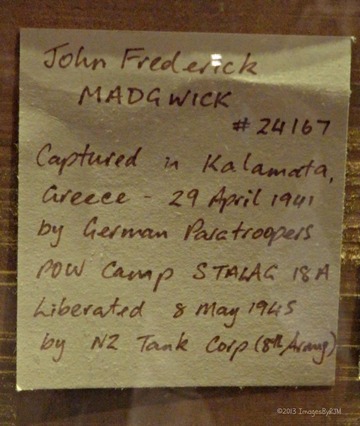 John Frederick
MADGWICK
# 24167
Captured in Kalamata,
Greece - 29 April 1941
by German Paratroopers
POW Camp STALAG 18A
Liberated 8 May 1945
by NZ Tank Corp (8th Army)
©2013 ImagesByRJM